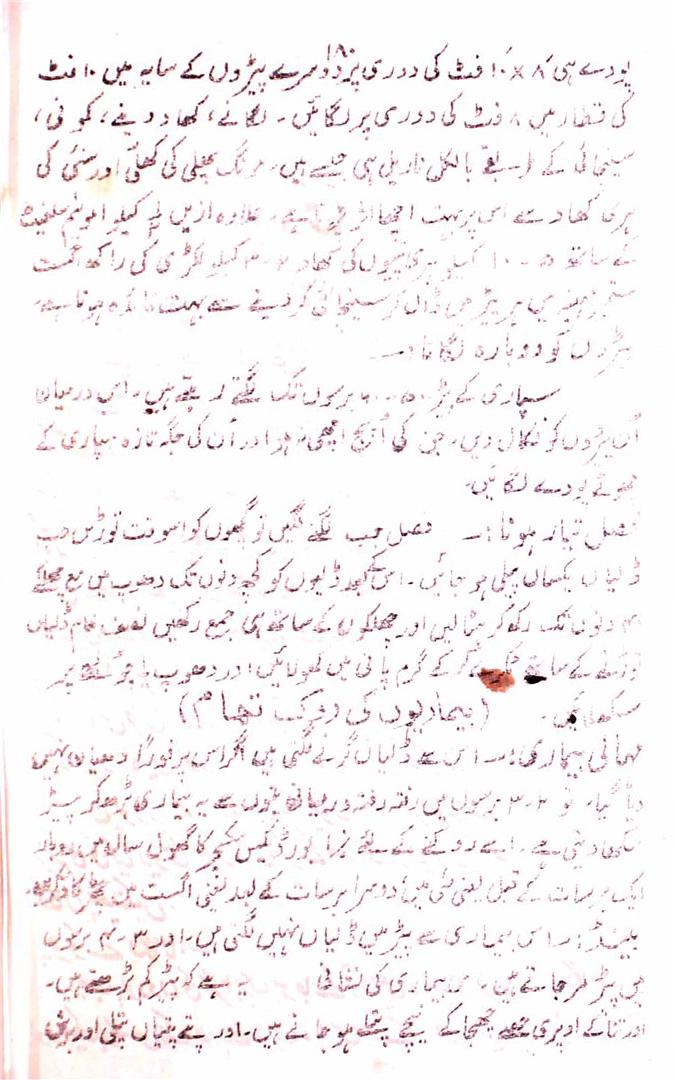 ۱۸۰
پودے ہی ۸ × ۱۰ فٹ کی دوری پر دوسرے پیڑوں کے سایہ میں ۱۰ فٹ
کی قطار میں ۸ فٹ کی دوری پر لگائیں۔ لگانے، کھاد دینے، کوڑنی،
سینچائی کے طریقے بالکل ناریل ہی جیسے ہیں۔ مونگ پھلی کی کھلی اور سنئی کی
ہری کھاد سے اس پر بہت اچھا اثر پڑتا ہے۔ علاوہ ازیں کیلو امونیم سلفیٹ
کے ساتھ ۵ - ۱۰ کیلو ہری پتیوں کی کھاد ۲ - ۳ کیلو لکڑی کی راکھ اگست
ستمبر مہینہ میں ہر پیڑ میں ڈال کر سینچائی کر دینے سے بہت فائدہ ہوتا ہے۔
پیڑوں کو دوبارہ لگانا :۔
سپاری کے پیڑ ۵۰ - ۶۰ برسوں تک لگتے رہتے ہیں۔ اس درمیان
اُن پیڑوں کو نکال دیں۔ جن کی اُپج اچھی نہ ہو اور اُن کی جگہ تازہ سپاری کے
چھوٹے پودے لگائیں۔
فصل تیار ہونا :۔ فصل جب لگنے لگیں تو گچھوں کو اسوقت توڑیں جب
ڈلیاں یکساں پیلی ہو جائیں۔ اس کے بعد ڈلیوں کو کچھ دنوں تک دھوپ میں مع چھلکے
دنوں تک رکھ کر ہٹا لیں اور چھلکوں کے ساتھ ہی جمع رکھیں نصف خام ڈلیاں
توڑنے کے ساتھ کر کے گرم پانی میں کھولائیں اور دھوپ یا چولھے پر
سکھلائیں۔ (بیماریوں کی روک تھام)
مہالی بیماری :۔ اس سے ڈلیاں گرنے لگتی ہیں اگر اس پر فوراً دھیان نہیں
دیا گیا۔ تو ۲-۳ برسوں میں رفتہ رفتہ درمیانی پتوں سے یہ بیماری بڑھ کر پیڑ
سکھا دیتی ہے۔ اسے روکنے کے لئے بورڈیکس مکسچر کا گھول سال میں دو بار
ایک برسات کے قبل یعنی مئی میں دوسرا برسات کے بعد یعنی اگست میں چھڑکاؤ کریں۔
بینڈ :۔ اس بیماری سے پیڑ میں ڈلیاں نہیں لگتی ہیں۔ اور ۳ - ۴ برسوں
میں پیڑ مر جاتے ہیں۔ اس بیماری کی نشانی یہ ہے کہ پیڑ کم بڑھتے ہیں۔
اور تنا کے اوپری حصے چھجا کے نیچے پتلے ہو جاتے ہیں۔ اور پتے پتیاں پتلی اور